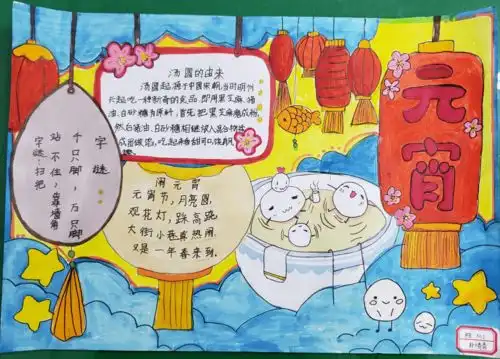 汤圆的由来
汤圆起源于中国宋朝,当时明州
兴起吃一种新奇的食品,即用黑芝麻、猪
油、白砂糖为原料,首先把黑芝麻磨成粉,
然后猪油、白砂糖相继续入混合物搓
成面团馅,吃起来香甜可口
元宵
字谜
千只脚,万只脚
站不住,靠墙角
字谜:扫把
闹元宵
元宵节,月亮圆,
观花灯,踩高跷
大街小巷真热闹,
又是一年春来到。